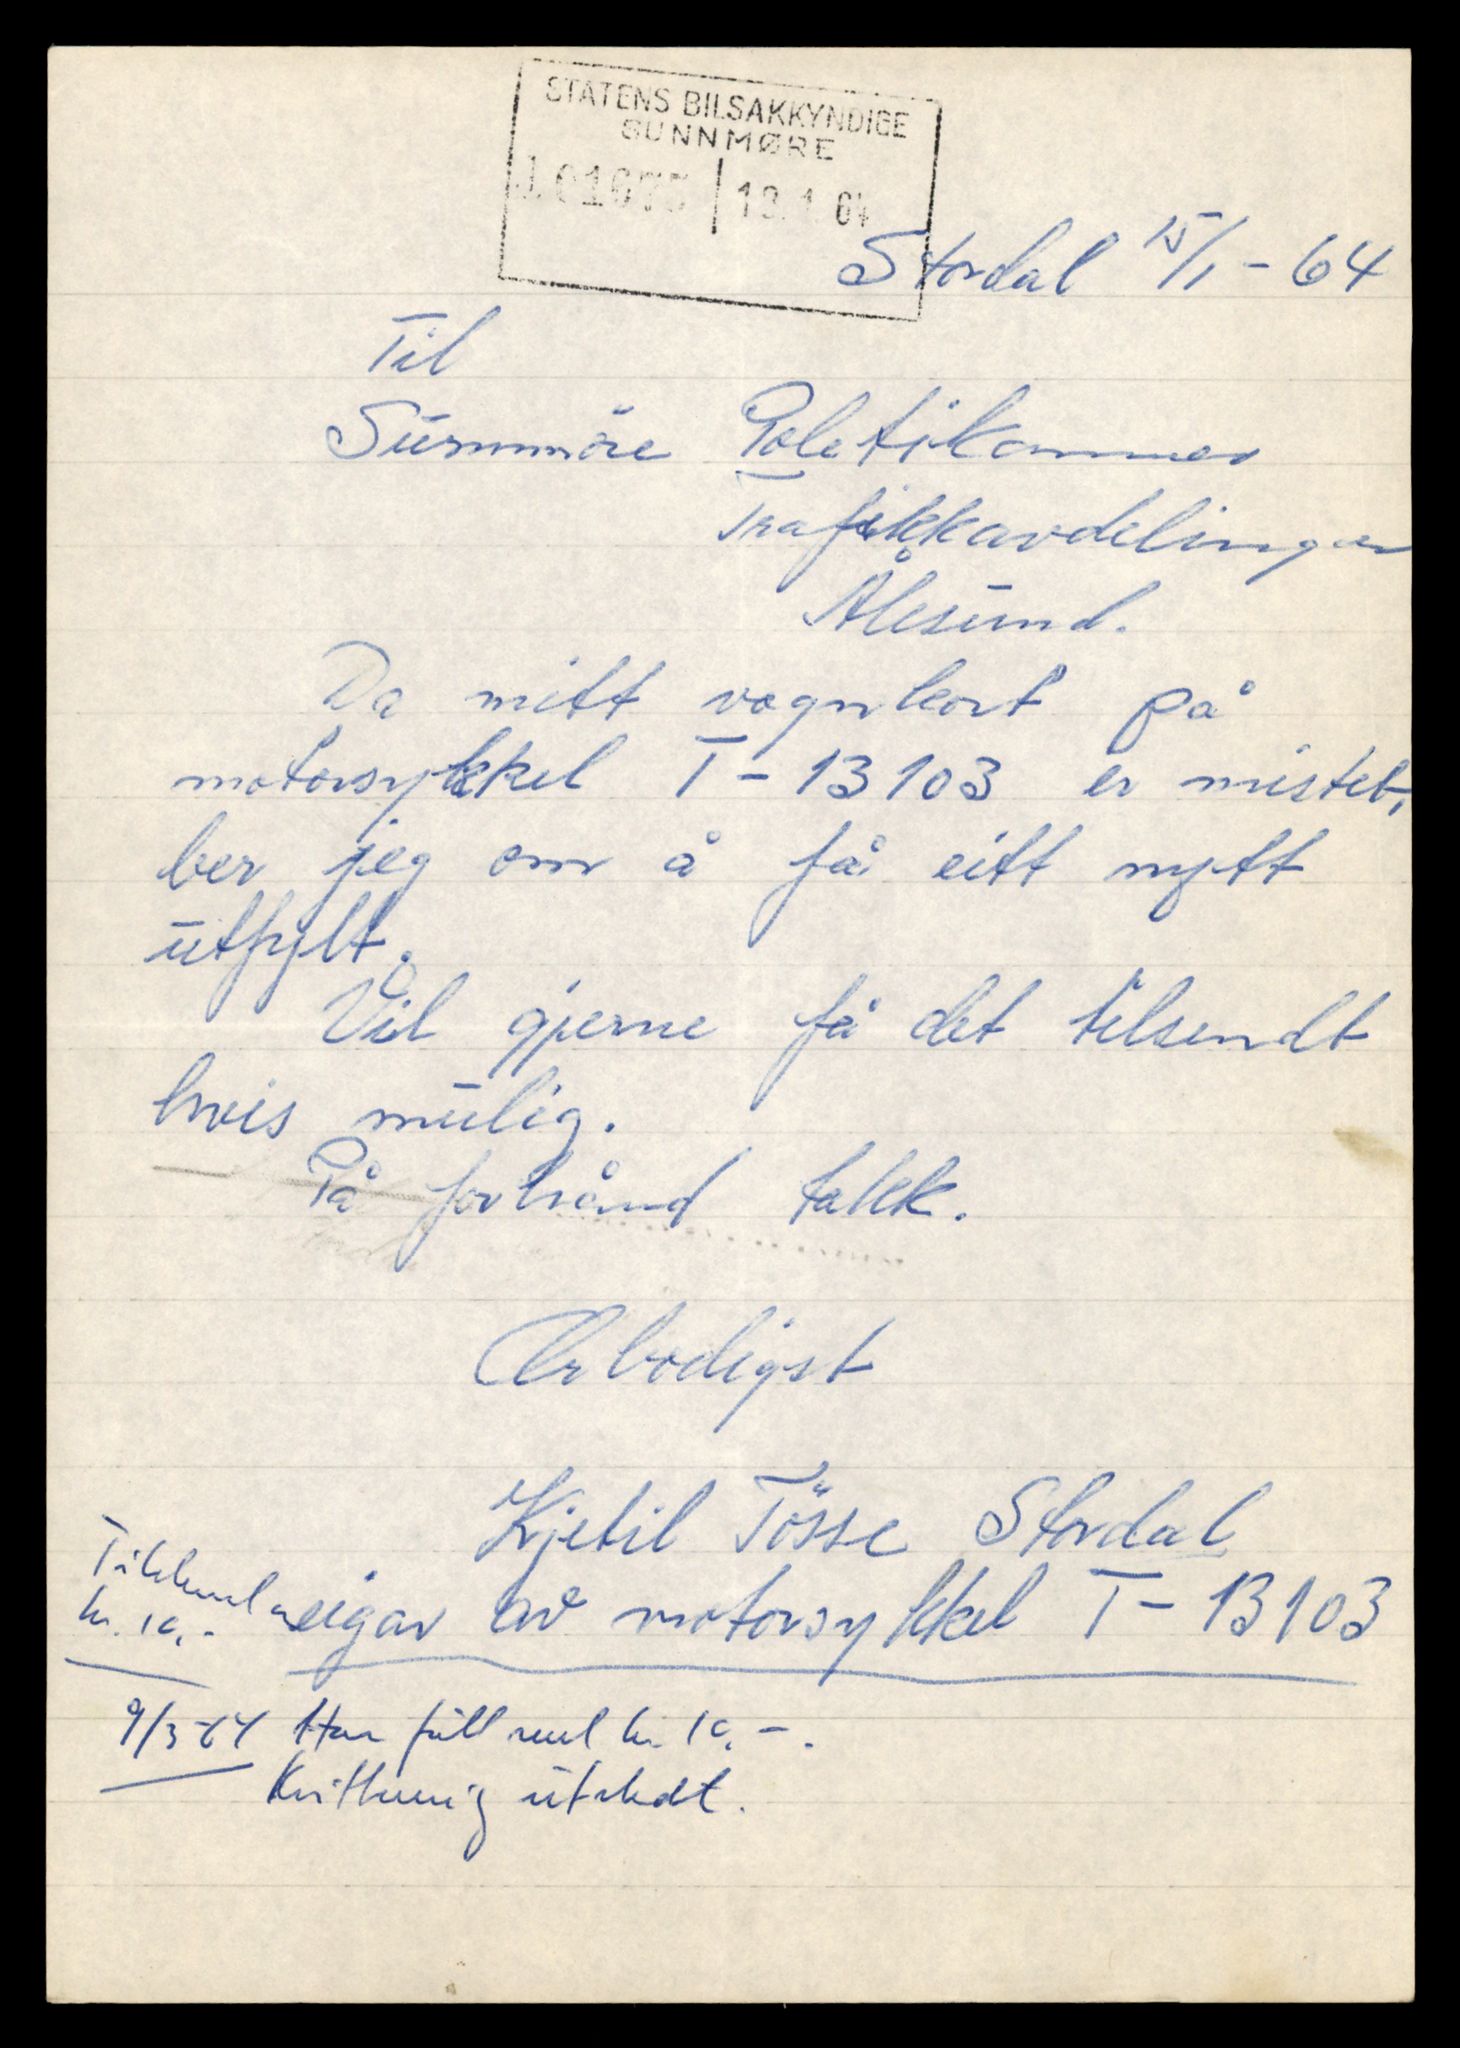 STATENS BILSAKKYNDIGE
SUNNMØRE
Stordal 15/1 - 64
Til
Sunnmöre Poletikammer
Trafikkavdelingen
Ålesund.
Da mitt vognkort på
motorsykkel T - 13103 er mistet,
ber jeg om å få eitt nytt
utfylt.
Vil gjerne få det tilsendt
hvis mulig.
På forhånd takk.
Ærbodigst
Kjetil Tösse Stordal
eigar av motorsykkel T - 13103
kr. 10,-
9/3-64 Har kr. 10,-.
Kvittering utstedt.